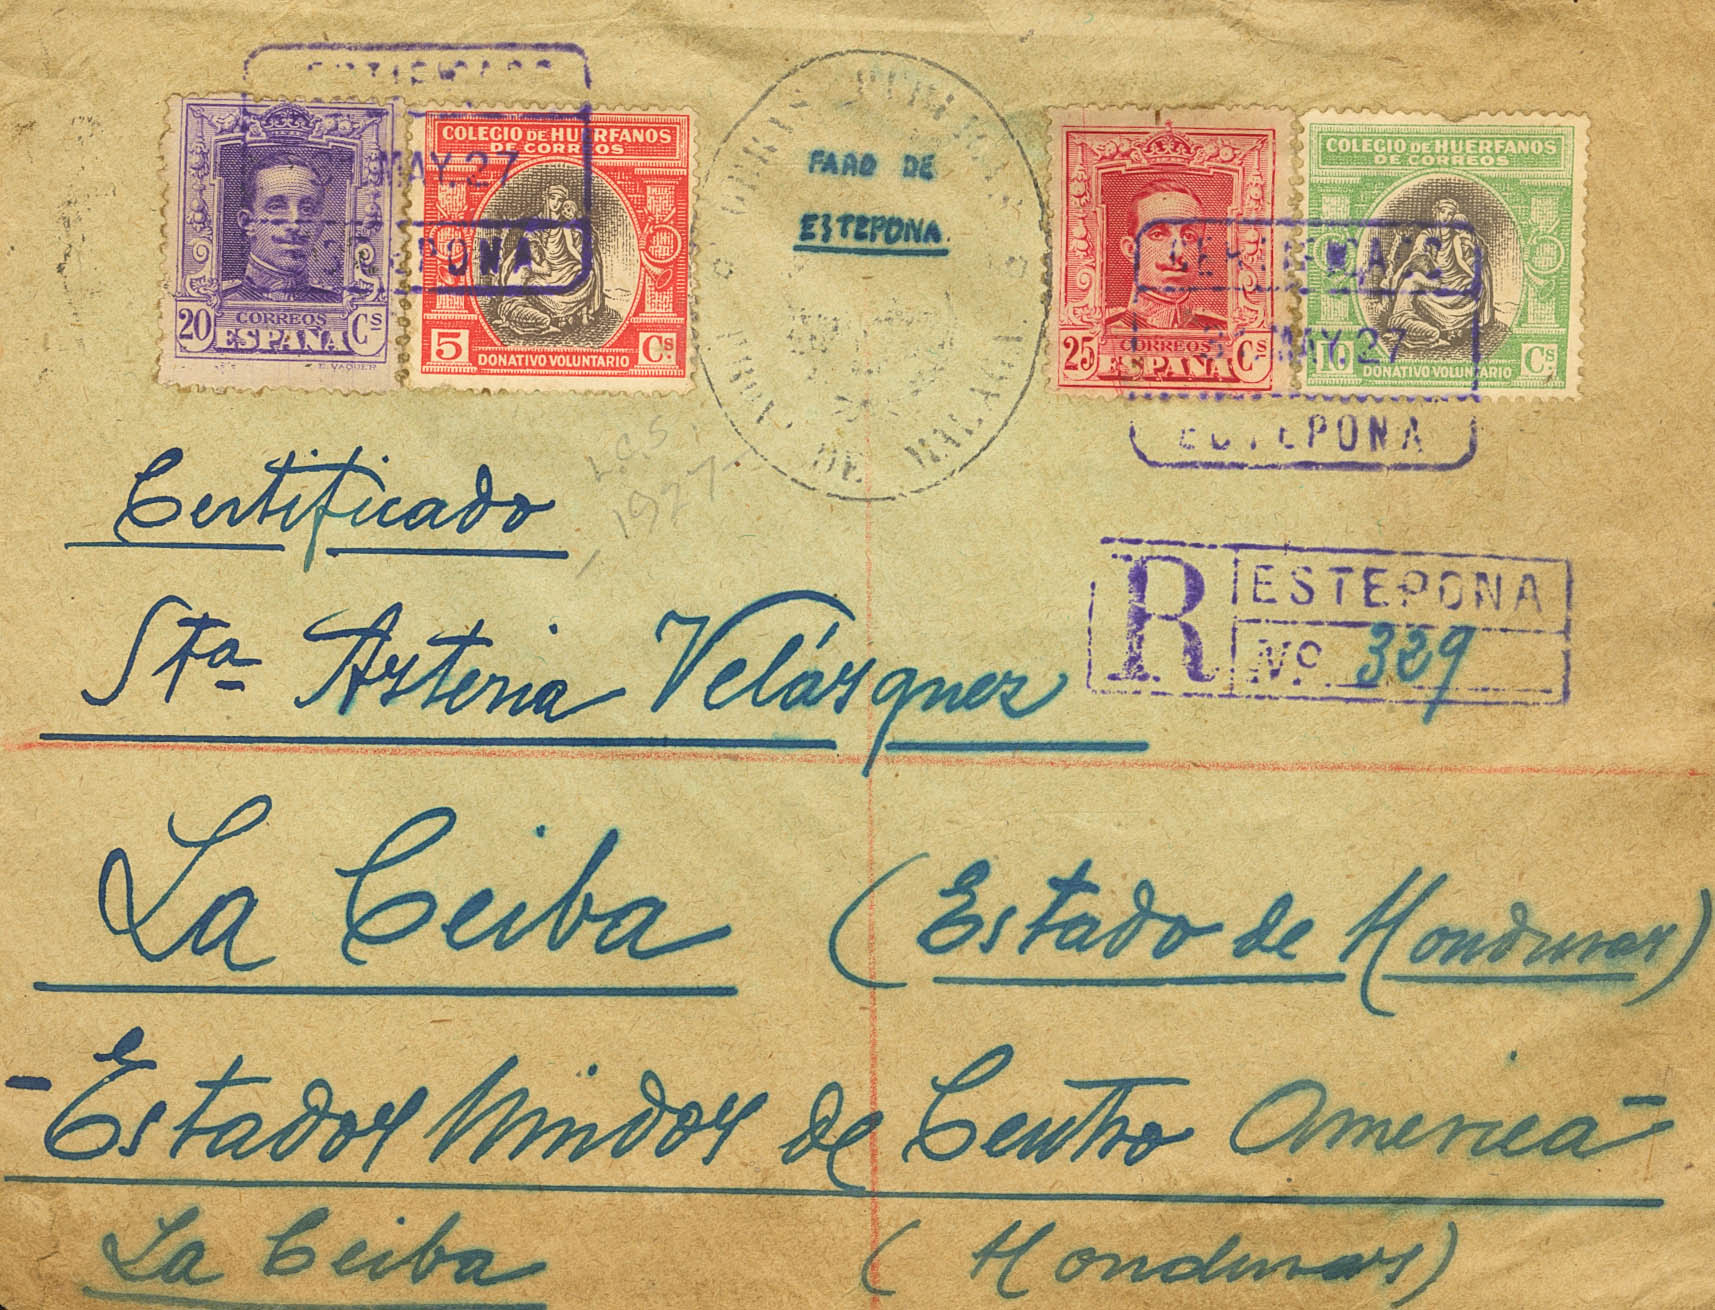 CERTIFICADO
MAY.27
ESTEPONA
CORREOS
20 ESPAÑA Cs
E. VAQUER
COLEGIO DE HUERFANOS
DE CORREOS
5 DONATIVO VOLUNTARIO Cs.
FARO DE
ESTEPONA
DE MALAGA
CORREOS
25 ESPAÑA Cs
COLEGIO DE HUERFANOS
DE CORREOS
10 DONATIVO VOLUNTARIO Cs
CERTIFICADO
MAY.27
ESTEPONA
1927
Certificado
R ESTEPONA
Nº 329
Sta Asteria Velásquez
La Ceiba (Estado de Honduras)
- Estados Unidos de Centro America -
La Ceiba (Honduras)